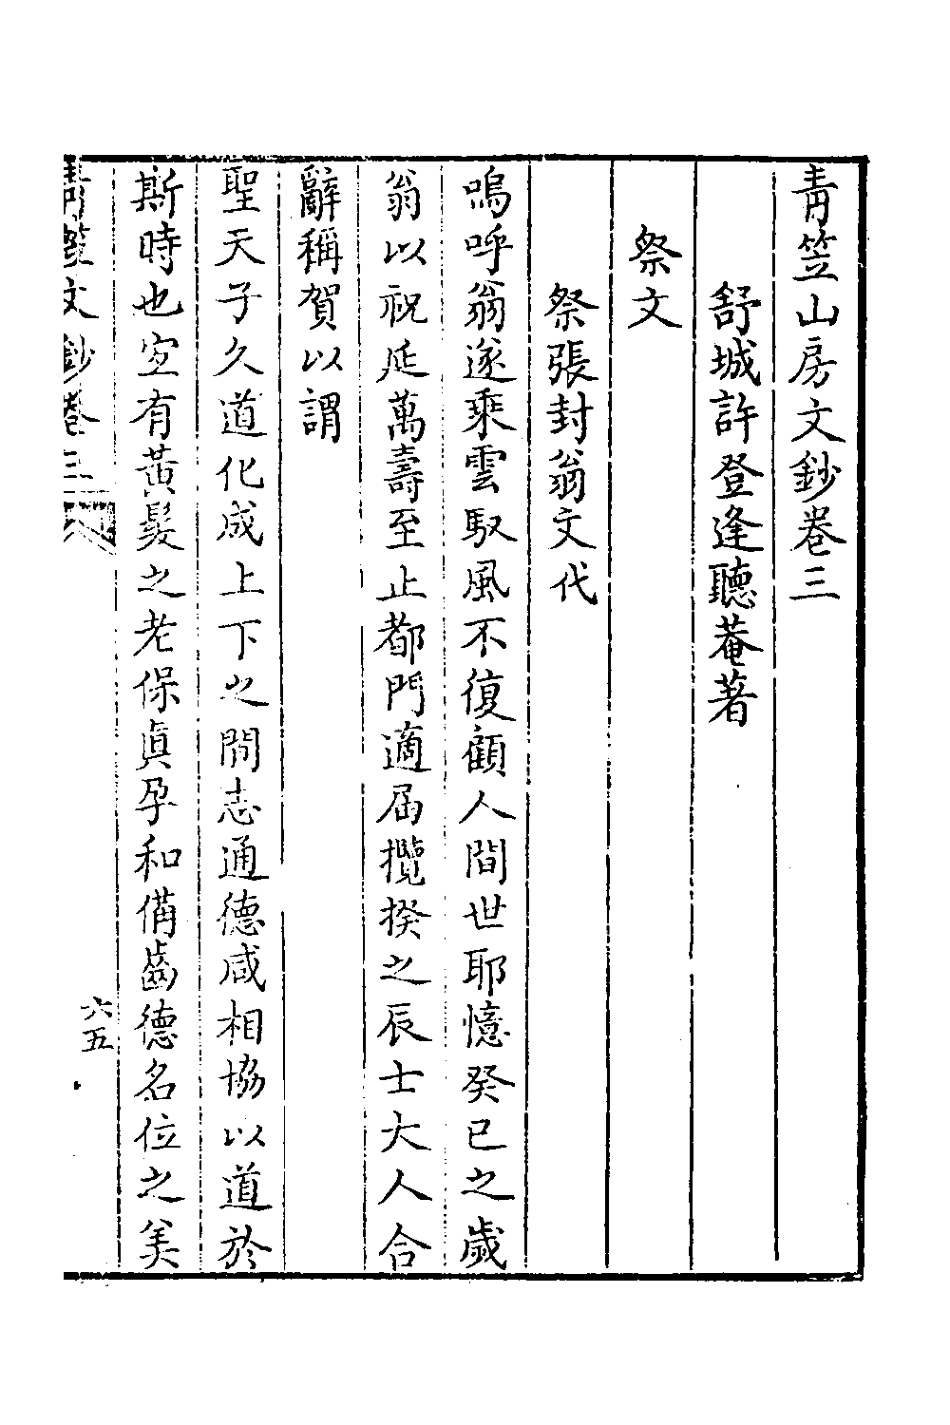 青笠山房文鈔卷三
舒城許登逢聽菴著
祭文
祭張封翁文代
嗚呼翁遂乘雲馭風不復顧人間世耶憶癸巳之歲
翁以祝延萬壽至止都門適屆攬揆之辰士大人合
辭稱賀以謂
聖天子久道化成上下之間志通德咸相協以道於
斯時也宐有黃髮之老保眞孕和備齒德名位之美
青笠文鈔卷三
六五